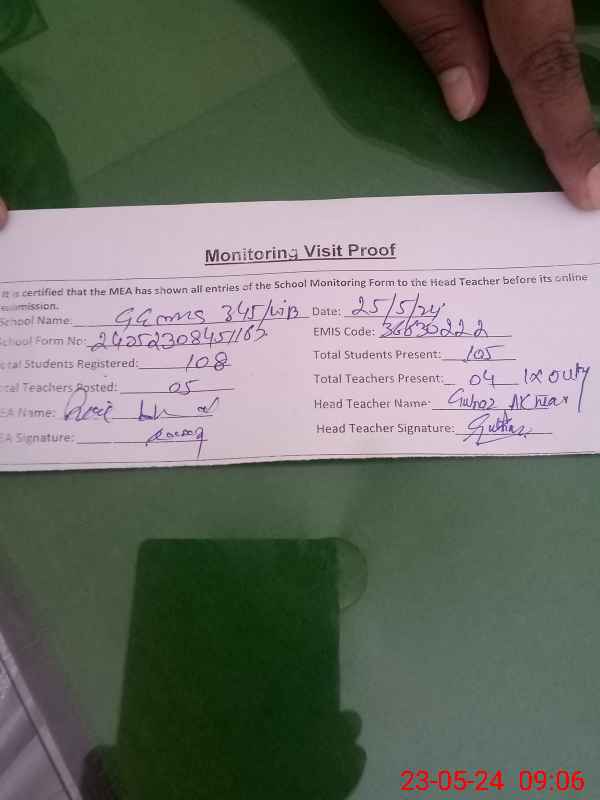 Monitoring Visit Proof
It is certified that the MEA has shown all entries of the School Monitoring Form to the Head Teacher before its online
submission.
School Name: GEMMS 345/WB Date: 25/5/24
School Form No: 24052308451162 EMIS Code: 36630222
Total Students Registered: 108 Total Students Present: 105
Total Teachers Posted: 05 Total Teachers Present: 04 1x Outy
EA Name: Head Teacher Name: Gulnaz Akhtar
EA Signature: Head Teacher Signature:
23-05-24 09:06